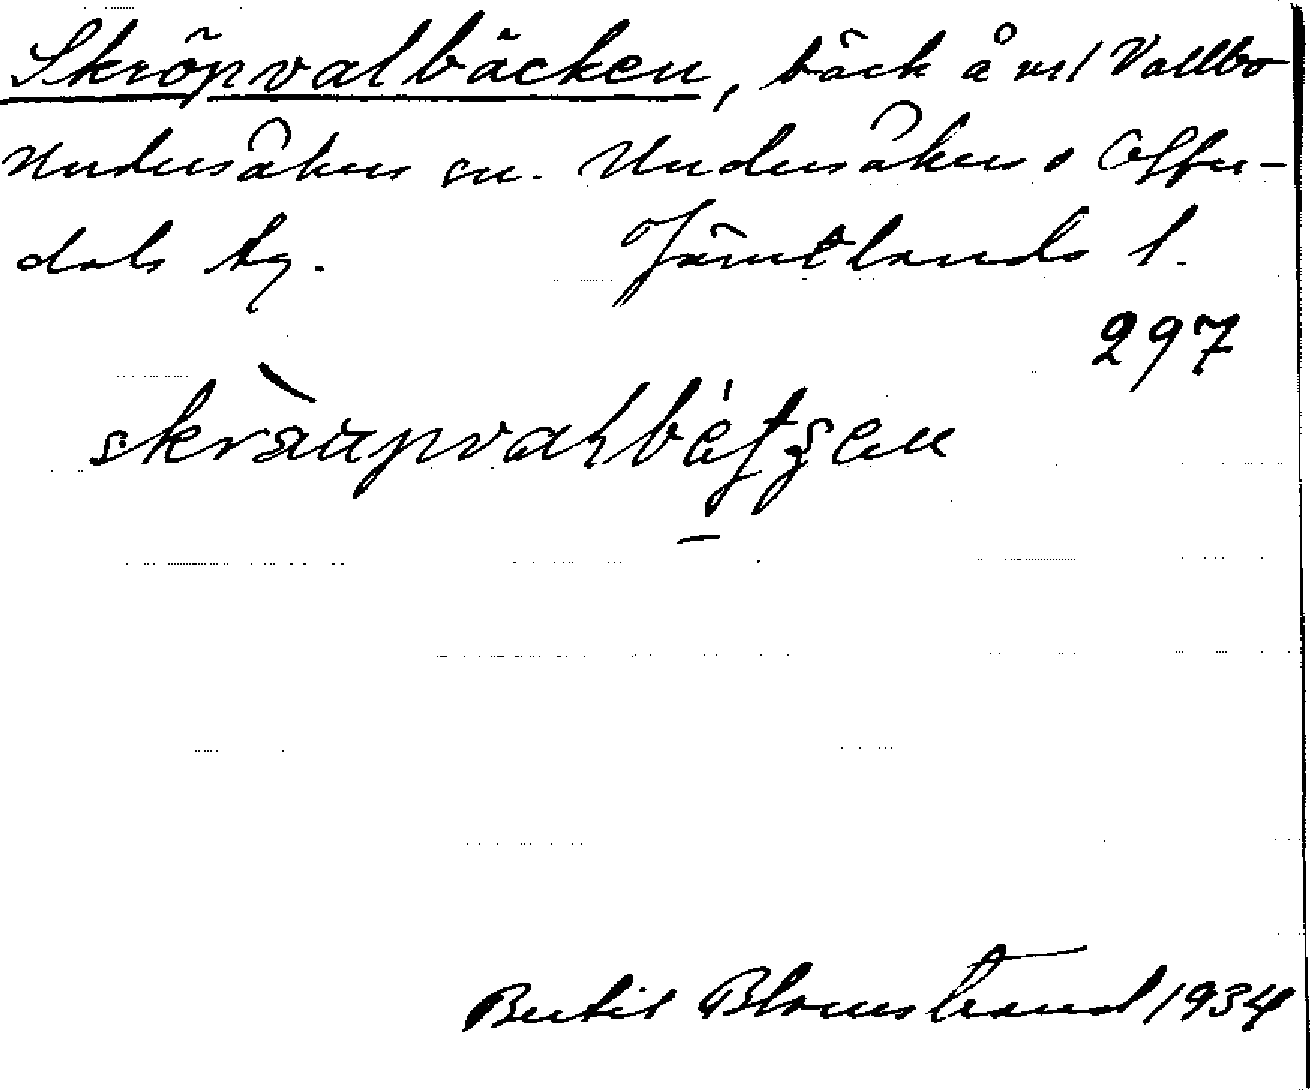 Skröpvalbäcken, bäck å vsl Vallbo
Undersåkers sn. Undersåkers o Offer-
dals tg. Jämtlands l.
297
Bertil Blomstrand 1934